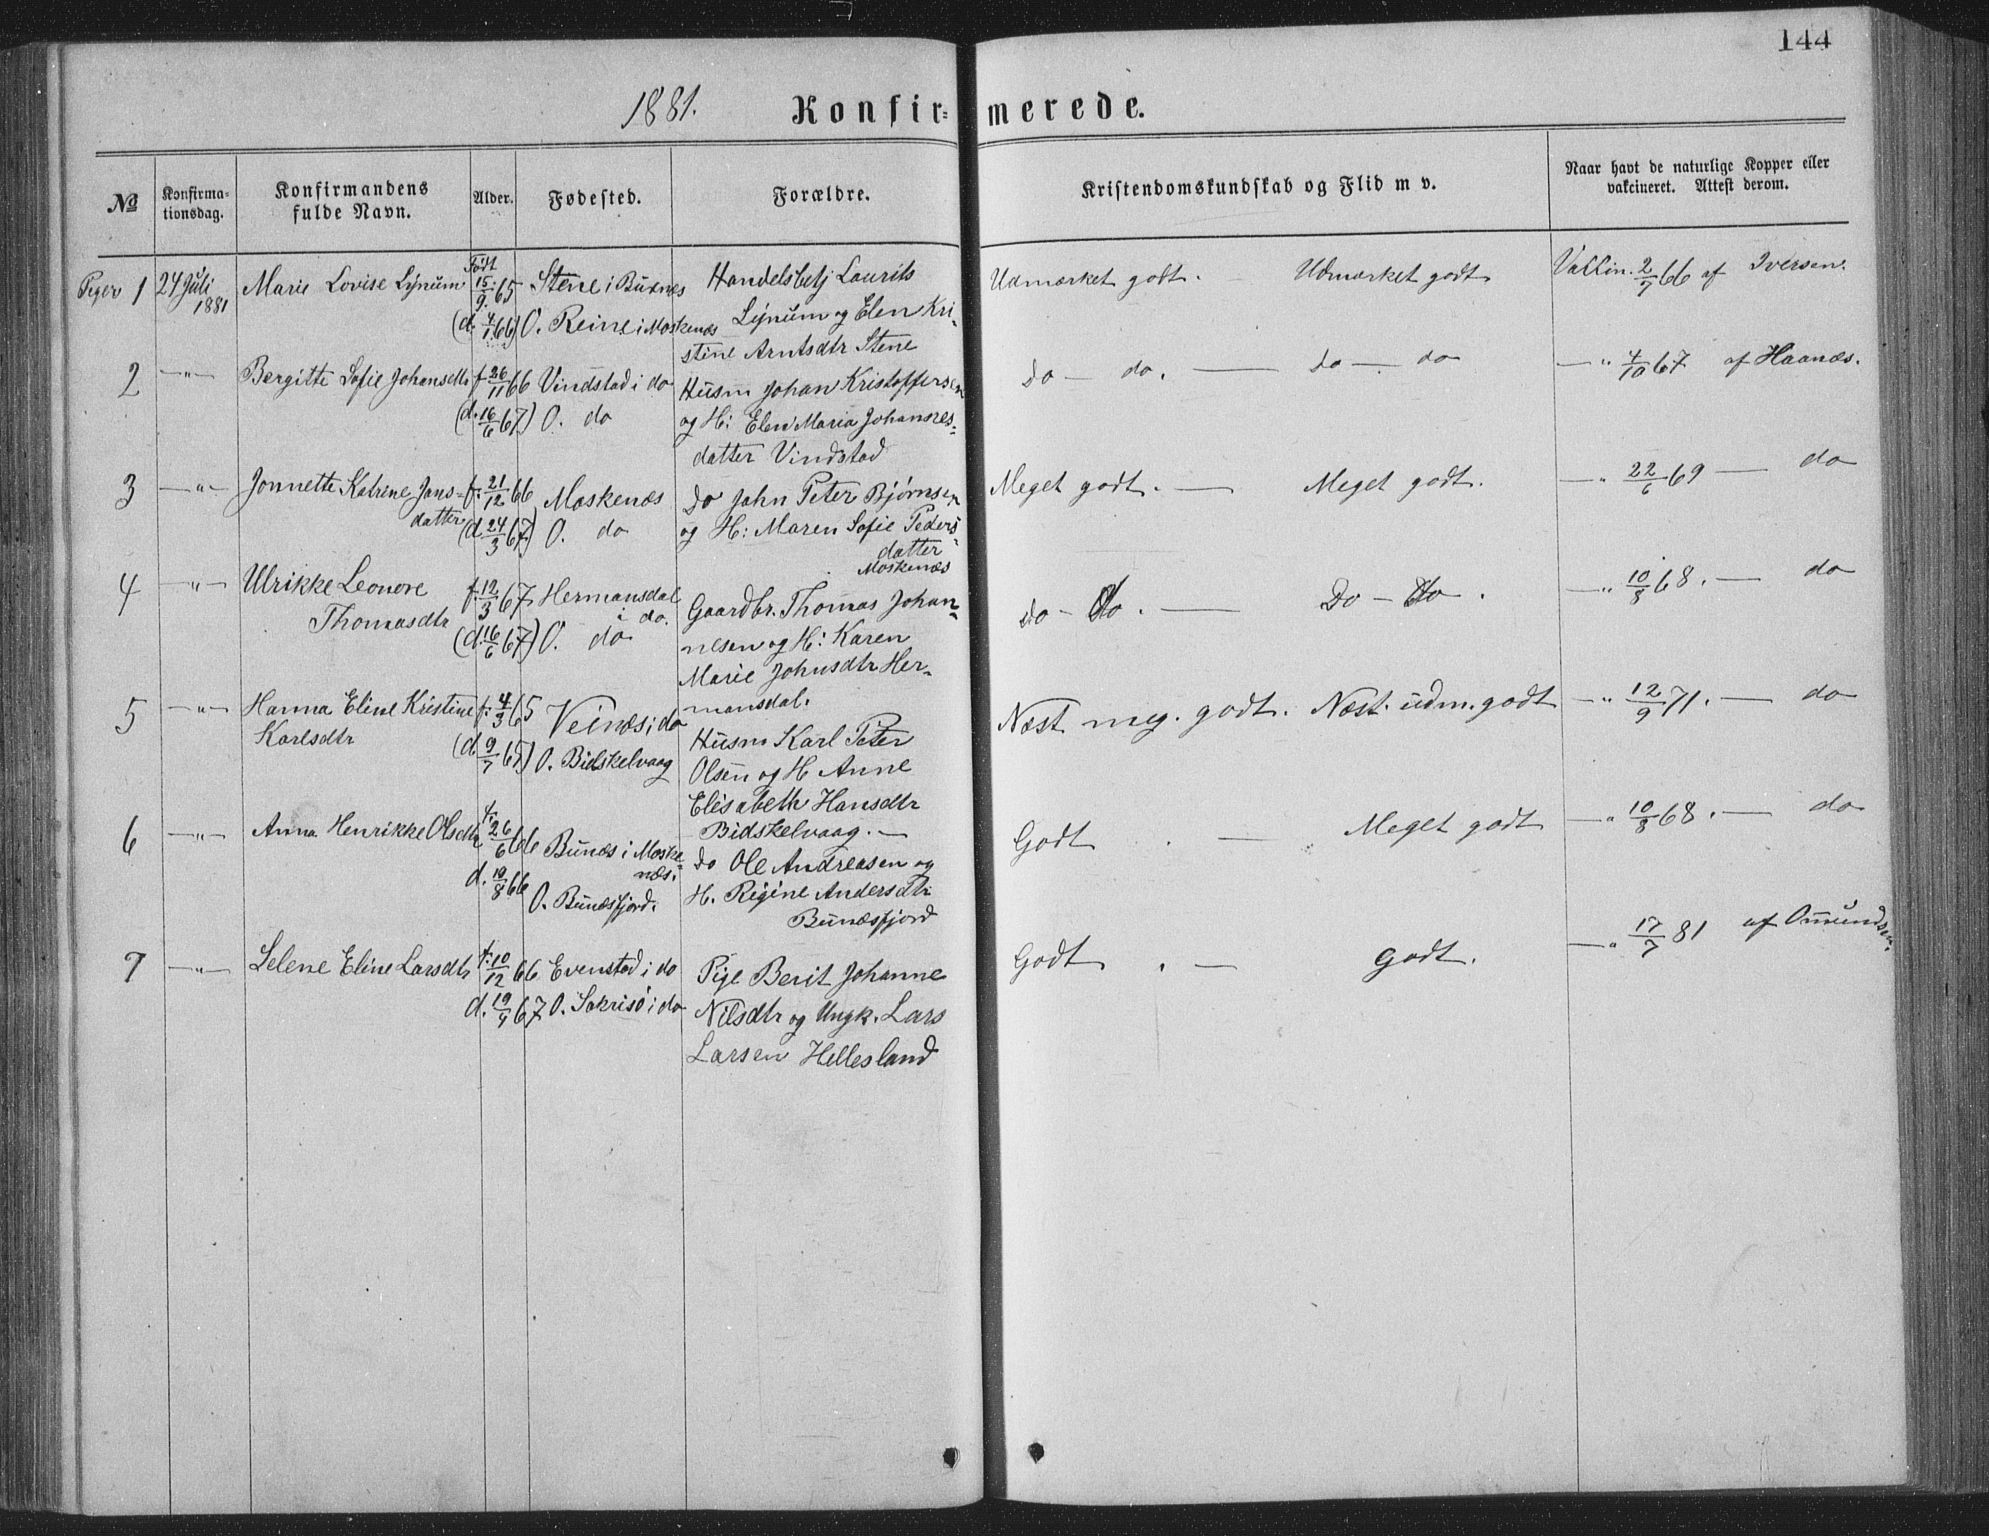 144
1881. Konfirmerede.
№ Konfirmationsdag. Konfirmandens fulde Navn. Alder. Fødested. Forældre. Kristendomskundskab og Flid m v. Naar havt de naturlige Kopper eller vakcineret. Attest derom.
Piger 1 24 Juli 1881 Marie Lovise Lynum Født 15/9 65 (d. 4/1 66) Stene i Buxnes O. Reine i Moskenæs
Handelsbetj Laurits
Lynum og Elen Kri-
stine Arntsdtr Stene
Udmærket godt. — Udmærket godt Vakcin. 2/7 66 af Iversen.
2 —"— Bergitte Sofie Johansdtr f. 26/11 66 (d. 16/6 67) Vindstad i do O. do
Husm Johan Kristoffersen
og H: Elen Maria Johannes-
datter Vindstad
do — do. — do — do —" 4/10 67 af Haanæs.
3 —"— Jonnette Katrine Jans-
datter f. 21/12 66 (d. 24/3 67) Moskenæs O. do
do John Peter Bjørnsen
og H: Maren Sofie Peders-
datter
Moskenæs
Meget godt. — Meget godt. —" 22/6 69 — do
4 —"— Ulrikke Leonore
Thomasdtr f. 12/3 67 (d. 16/6 67) Hermansdal i do. O. do
Gaardbr. Thomas Johan-
nesen og H: Karen
Marie Johnsdtr Her-
mansdal.
do — do. — Do — do. —" 10/8 68. — do
5 —"— Hanna Eline Kristine
Karlsdtr f: 4/3 65 (d. 9/7 65) Veinæs i do O. Bidskelvaag
Husm Karl Peter
Olsen og H Anne
Elisabeth Hansdtr
Bidskelvaag. —
Næst meg. godt. Næst. udm. godt —" 12/9 71. — do
6 —"— Anna Henrikke Olsdtr f. 26/6 66 d. 19/8 66 Bunæs i Moske-
næs. O. Bunæsfjord.
do Ole Andreasen og
H. Regine Andersdtr
Bunæsfjord
Godt . — Meget godt —" 10/8 68. — do
7 —"— Selene Eline Larsdtr f. 10/12 66 d. 19/9 67 Evenstad i do O. Sakrisø i do
Pige Berit Johanne
Nilsdtr og Ungk. Lars
Larsen Hellesland
Godt . — godt. —" 17/7 81 af Omundsen.